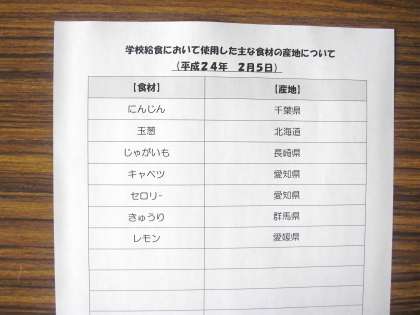 学校給食において使用した主な食材の産地について
（平成24年　2月5日）
【食材】　【産地】
にんじん　千葉県
玉葱　北海道
じゃがいも　長崎県
キャベツ　愛知県
セロリー　愛知県
きゅうり　群馬県
レモン　愛媛県